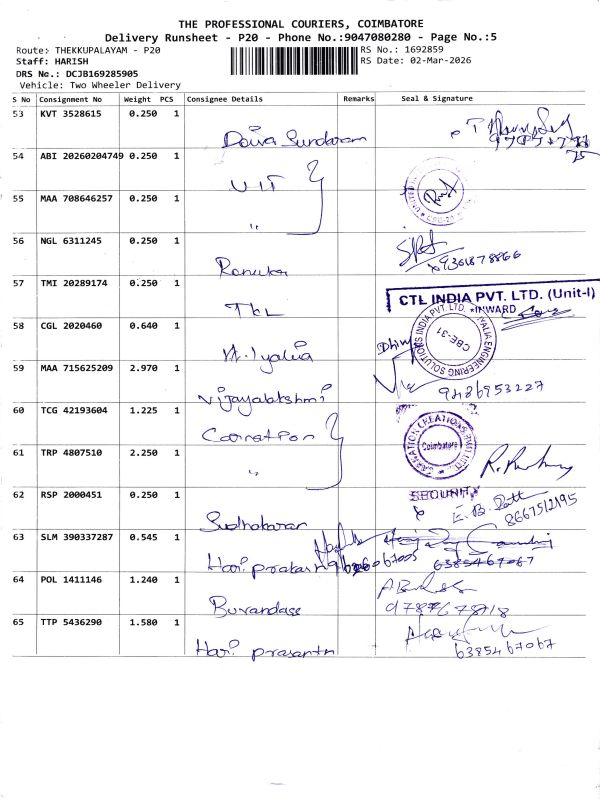 THE PROFESSIONAL COURIERS, COIMBATORE
Delivery Runsheet - P20 - Phone No.:9047080280 - Page No.:5
Route: THEKKUPALAYAM - P20
RS No.: 1692859
Staff: HARISH
RS Date: 02-Mar-2026
DRS No.: DCJB169285905
Vehicle: Two Wheeler Delivery
S No Consignment No Weight PCS Consignee Details Remarks Seal & Signature
53 KVT 3528615 0.250 1
54 ABI 20260204749 0.250 1
UIT
55 MAA 708646257 0.250 1
"
56 NGL 6311245 0.250 1
Renuka 9361878866
57 TMI 20289174 0.250 1
CTL INDIA PVT. LTD. (Unit-I)
INWARD
58 CGL 2020460 0.640 1
CBE-31
59 MAA 715625209 2.970 1
Vijayalakshmi 9486953227
60 TCG 42193604 1.225 1
Coimbatore
61 TRP 4807510 2.250 1
"
62 RSP 2000451 0.250 1
SECURITY
Sudhakaran 8667512195
63 SLM 390337287 0.545 1
Hari prakash 6385467067
64 POL 1411146 1.240 1
65 TTP 5436290 1.580 1
Hari prasanth 6385467067